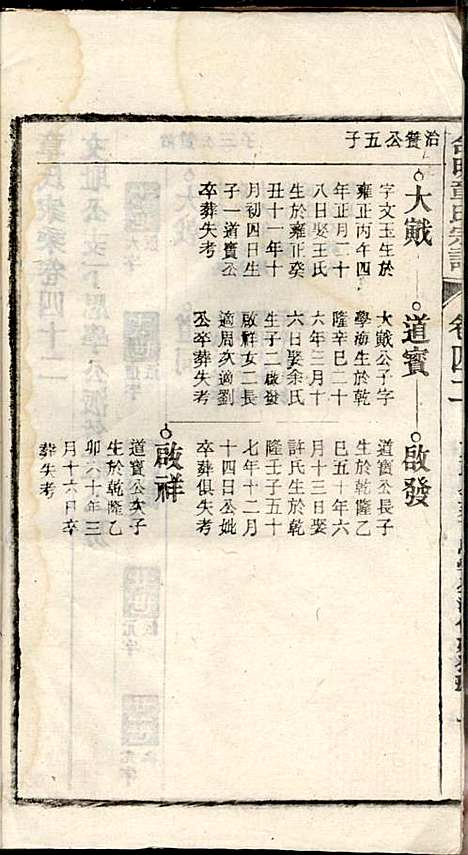 章氏宗譜
卷四十二
治養公五子
大戭
字文玉生於
雍正丙午四
年正月二十
八日娶王氏
生於雍正癸
丑十一年十
月初四日生
子一道賓公
卒葬失考
道賓
大戭公子字
學海生於乾
隆辛巳二十
六年三月十
六日娶余氏
生子二啟發
啟祥女二長
適周次適劉
公卒葬失考
啟發
道賓公長子
生於乾隆乙
巳五十年六
月十三日娶
許氏生於乾
隆壬子五十
七年十二月
十四日公妣
卒葬俱失考
啟祥
道賓公次子
生於乾隆乙
卯六十年三
月十六日卒
葬失考